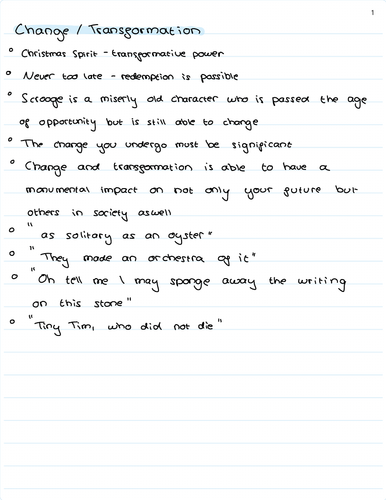 1
Change / Transformation
° Christmas Spirit - transformative power
° Never too late - redemption is possible
° Scrooge is a miserly old character who is passed the age
of opportunity but is still able to change
° The change you undergo must be significant
° Change and transformation is able to have a
monumental impact on not only your future but
others in society aswell
° "as solitary as an oyster"
° "They made an orchestra of it"
° "Oh tell me I may sponge away the writing
on this stone"
° "Tiny Tim, who did not die"